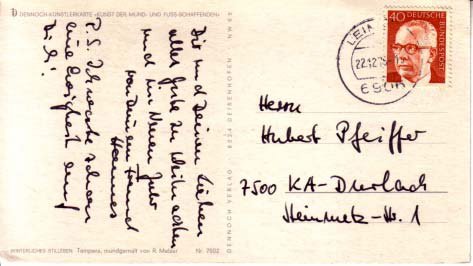 DENNOCH-KÜNSTLERKARTE »KUNST DER MUND- UND FUSS-SCHAFFENDEN«
NW 65
Dir und Deinen Lieben
alles Gute zu Weihnachten
und im Neuen Jahr
von Deinem Freund
Hannes
P.S. Ich warte schon
eine Ewigkeit auf
Dich!
WINTERLICHES STILLEBEN Tempera, mundgemalt von R. Metzer Nr. 7502
DENNOCH VERLAG 8024 DEISENHOFEN
22.12.75
690
40 DEUTSCHE BUNDESPOST
Herrn
Hubert Pfeiffer
7500 KA-Durlach
Steinmetz-Str. 1